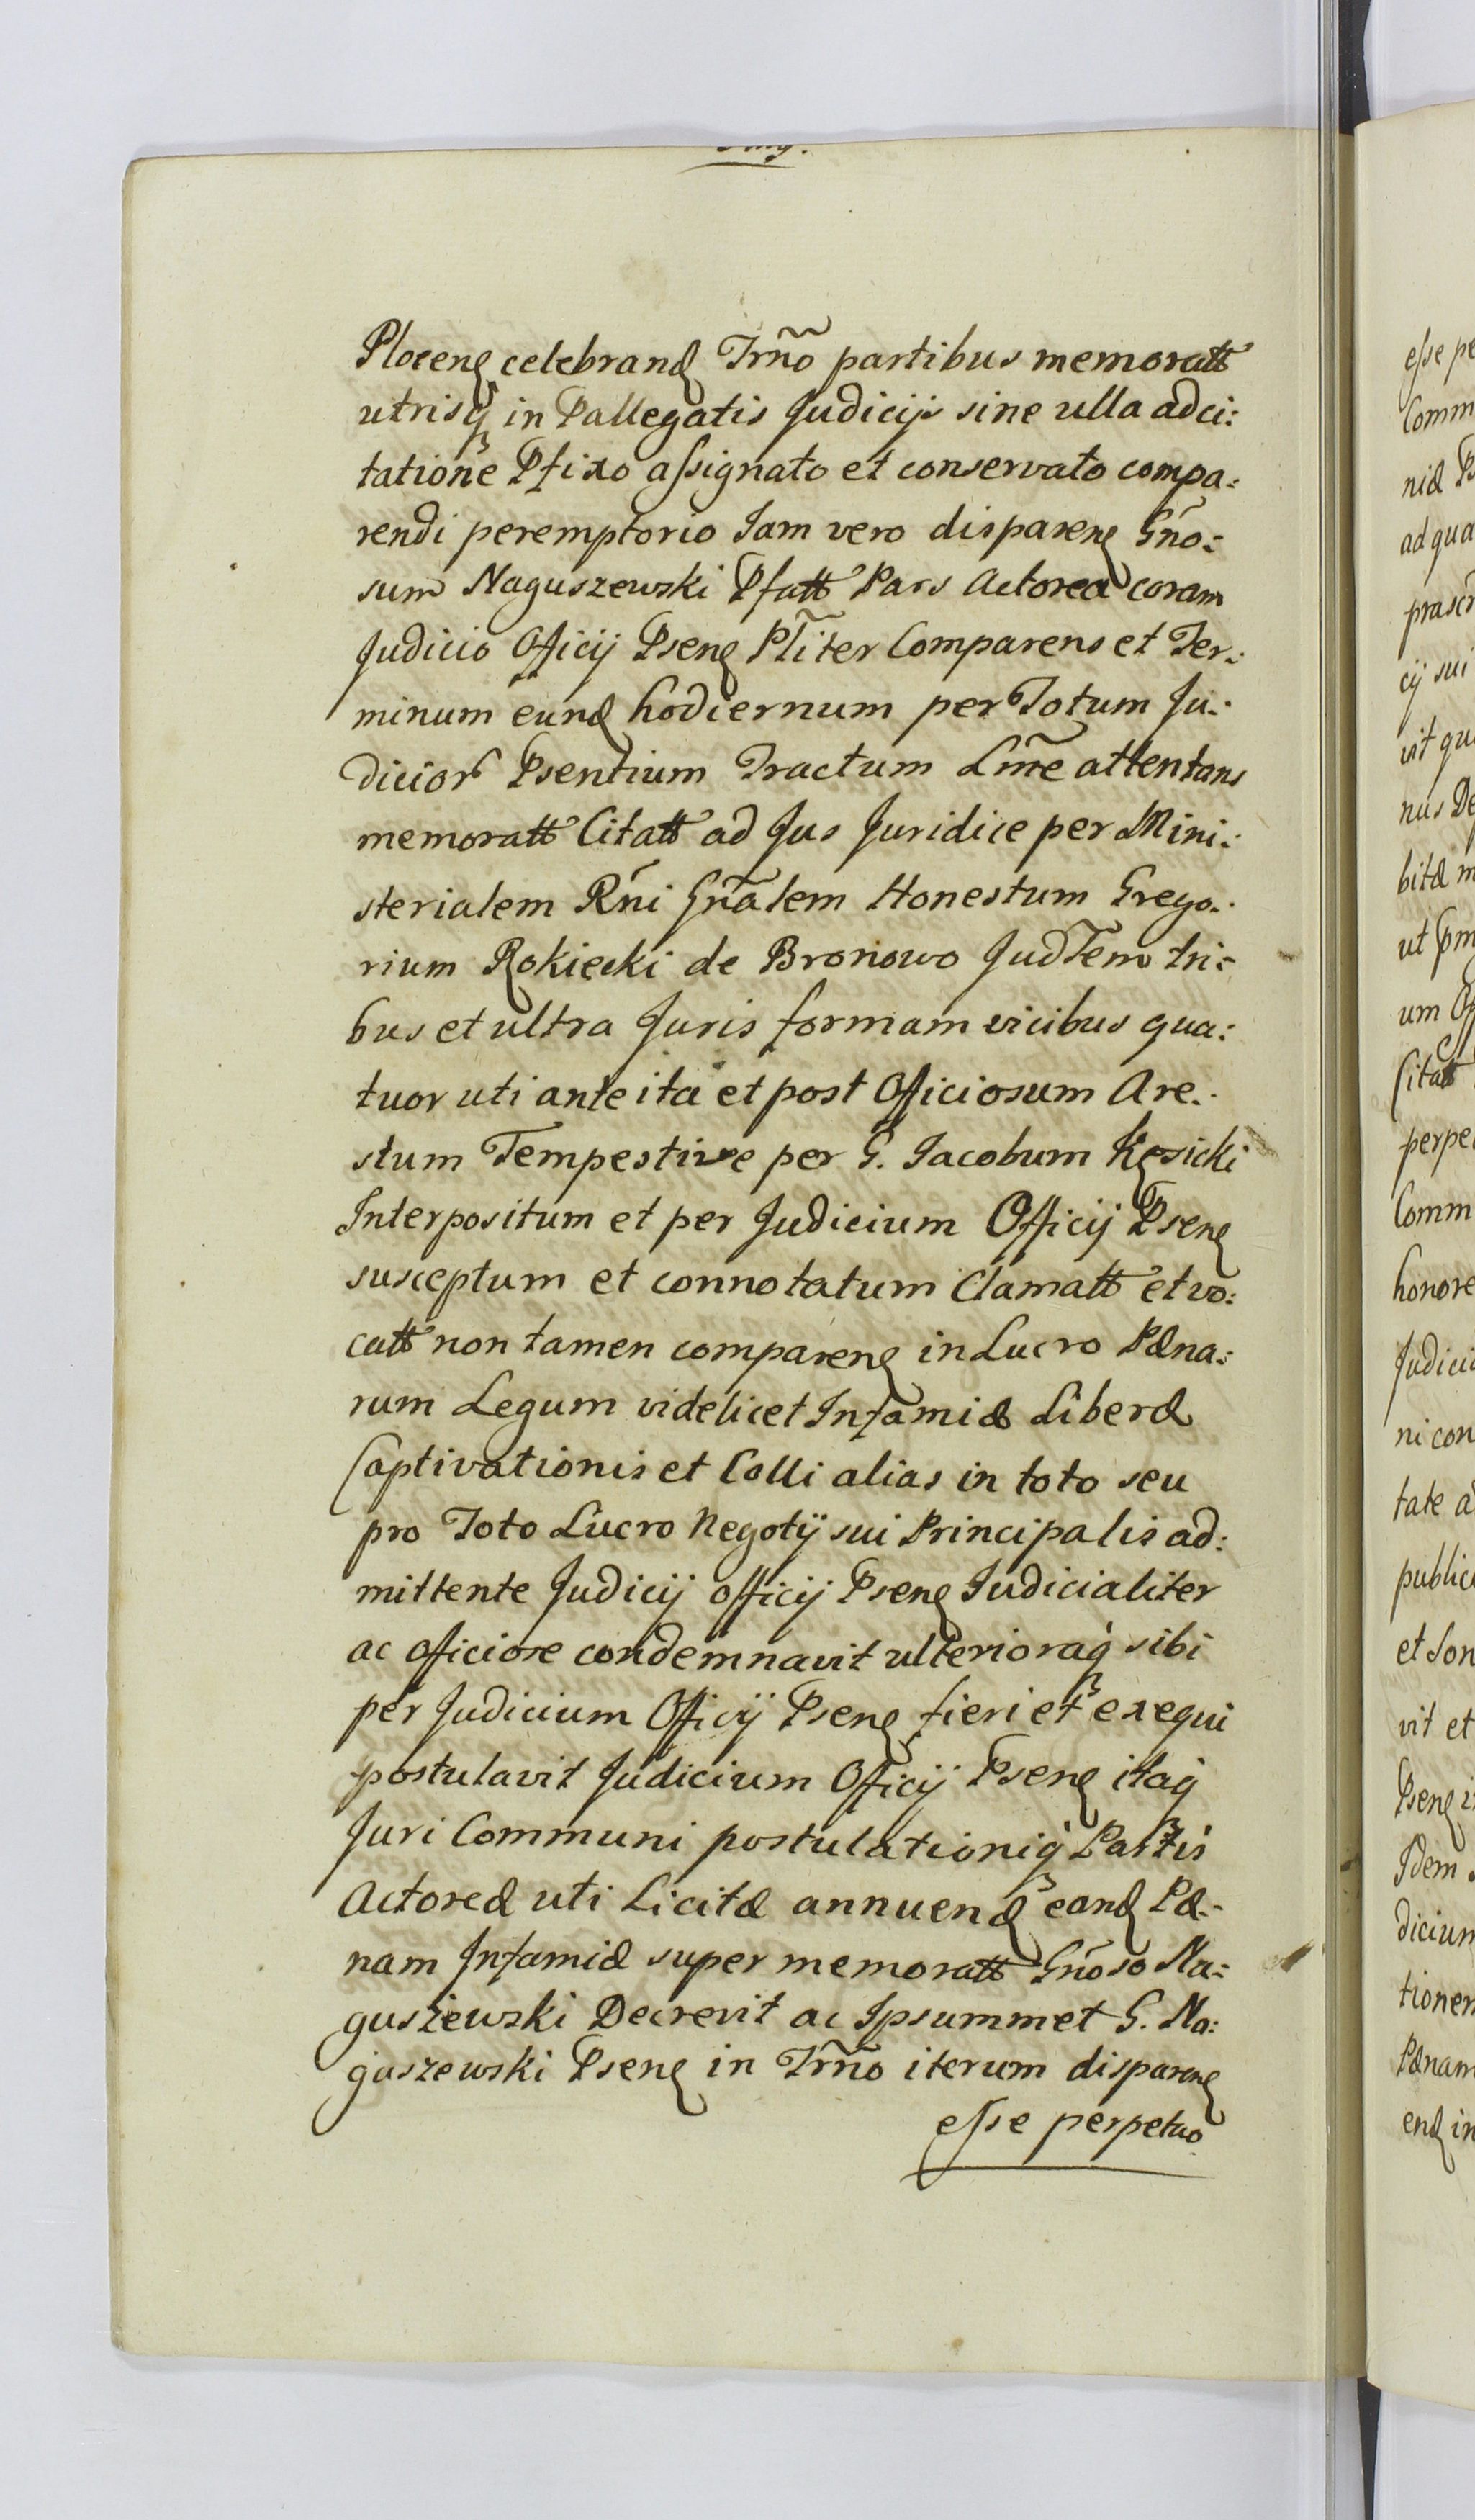 Plocenę celebranđ Trm̃o partibus memoratt
utrisq̨ in Pallegatis Judicijs sine ulla adci:
tatione Pfixo aſsignato et conservato compa:
rendi peremptorio Jam vero disparenę Gño:
sum Naguszewski Pfatt Pars Actorea coram
Judicio Officij Psenę Pl̃iter Comparens et Ter:
minum eunđ hodiernum per Totum Ju:
dicior Psentium Tractum Lm̃e attentans
memoratt Citatt ad Jus Juridice per Mini:
sterialem Rñi Gñalem Honestum Grego:
rium Rokiecki de Bronowo JudTem tri:
bus et ultra Juris formam vicibus qua:
tuor uti ante ita et post Officiosum Are:
stum Tempestive per G. Jacobum Kęsicki
Interpositum et per Judicium Officij Psenę
susceptum et connotatum Clamatt et vo:
catt non tamen comparenę in Lucro Pæna:
rum Legum videlicet Infamiæ Liberæ
Captivationis et Colli alias in toto seu
pro Toto Lucro Negotij sui Principalis ad:
mittente Judicij officij Psenę Judicialiter
ac officiose condemnavit ulterioraq̨ sibi
per Judicium Officij Psenę fieri et exequi
postulavit Judicium Officij Psenę itaq̨
Juri Communi postulationiq̨ Partis
Actoreæ uti Licitæ annuenđ eanđ Pæ:
nam Infamiæ super memoratt Gñoso Na:
guszewski Decrevit ac Ipsummet G. Na:
guszewski Psenę in Trm̃o iterum disparenę
eſse perpetuo
eſse pe
Comm
niæ P
ad qua
cij sui
vit qu
nus De
bitæ m
um Of
Citatt
perpe
Comm
honore
Judici
ni con
tate a
public
et Son
vit et
Psenę i
Idem
dicium
tionem
Pænam
enđ in